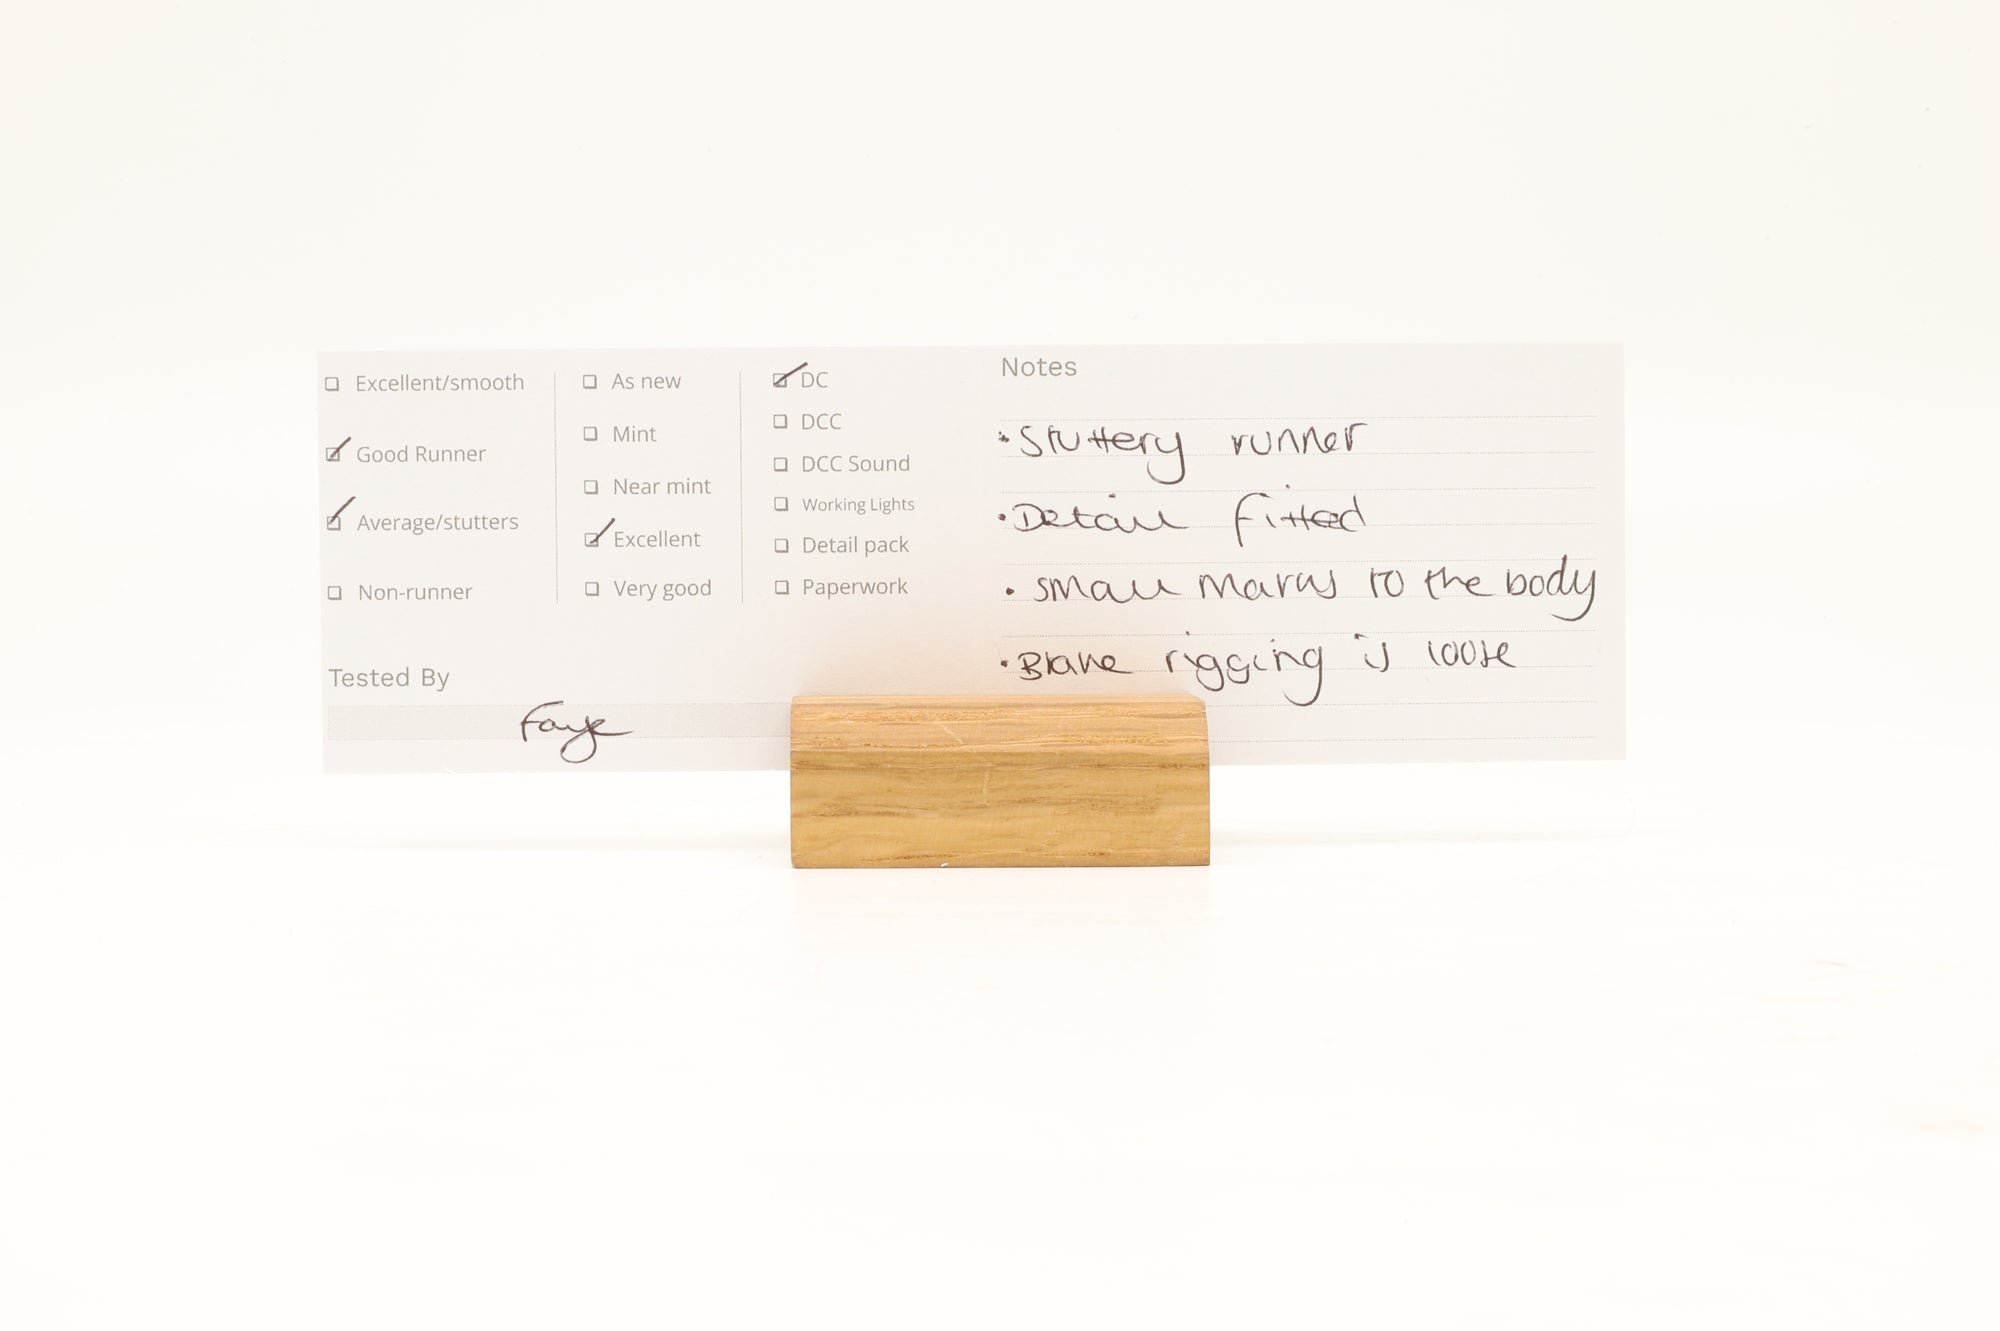 Excellent/smooth
Good Runner
Average/stutters
Non-runner
As new
Mint
Near mint
Excellent
Very good
DC
DCC
DCC Sound
Working Lights
Detail pack
Paperwork
Tested By
Faye
Notes
• Stuttery runner
• Detail fitted
• small marks to the body
• Brake rigging is loose